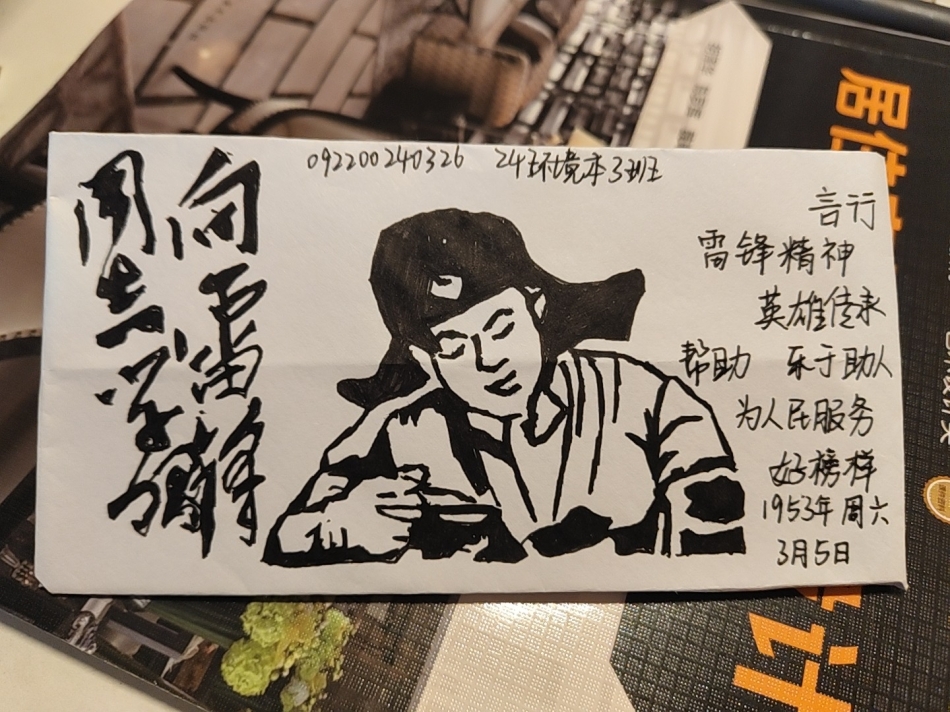 092200240326 24环境本3班
向雷锋
同志学习
言行
雷锋精神
英雄传承
帮助 乐于助人
为人民服务
好榜样
1953年 周六
3月5日
居住
计